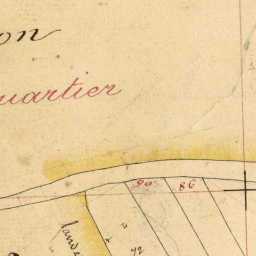 on
uartier
90 86
land
72